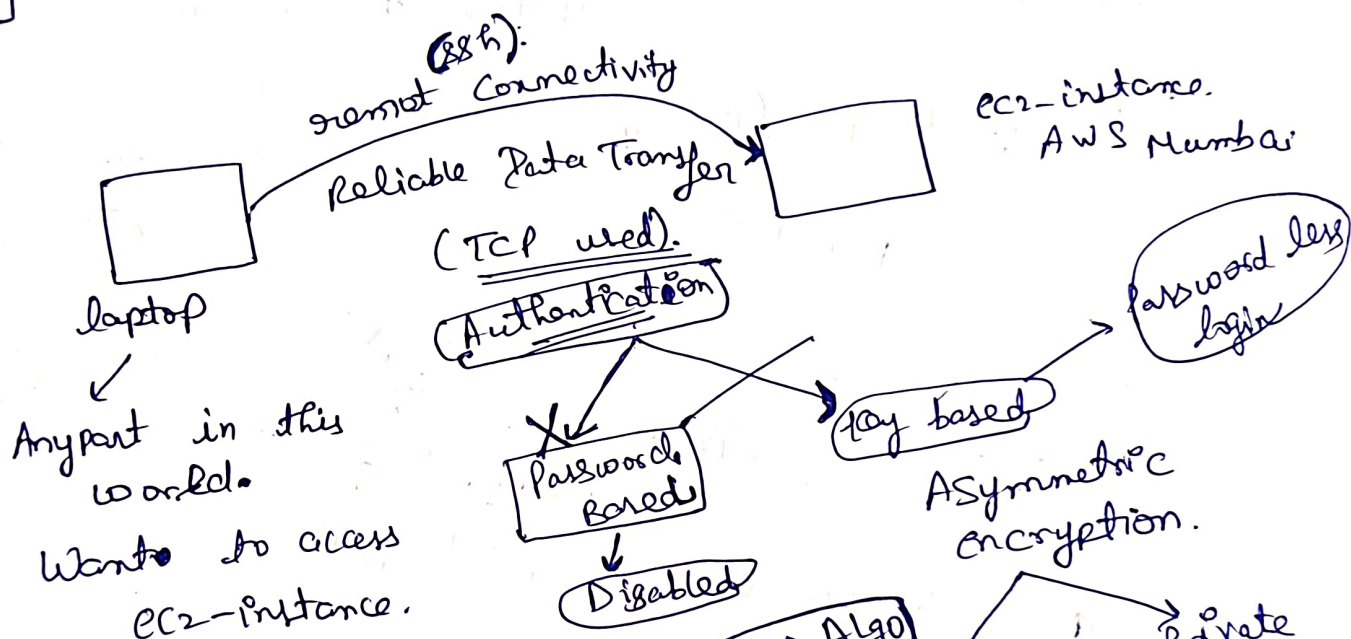 (ssh):
remot Connectivity
Reliable Data Transfer
(TCP used).
Authentication
ec2-instance.
AWS Mumbai
laptop
Anypart in this
world.
Wants to access
ec2-instance.
Password
Based
Disabled
Key based
Password less
login
Asymmetric
encryption.
Algo
Private